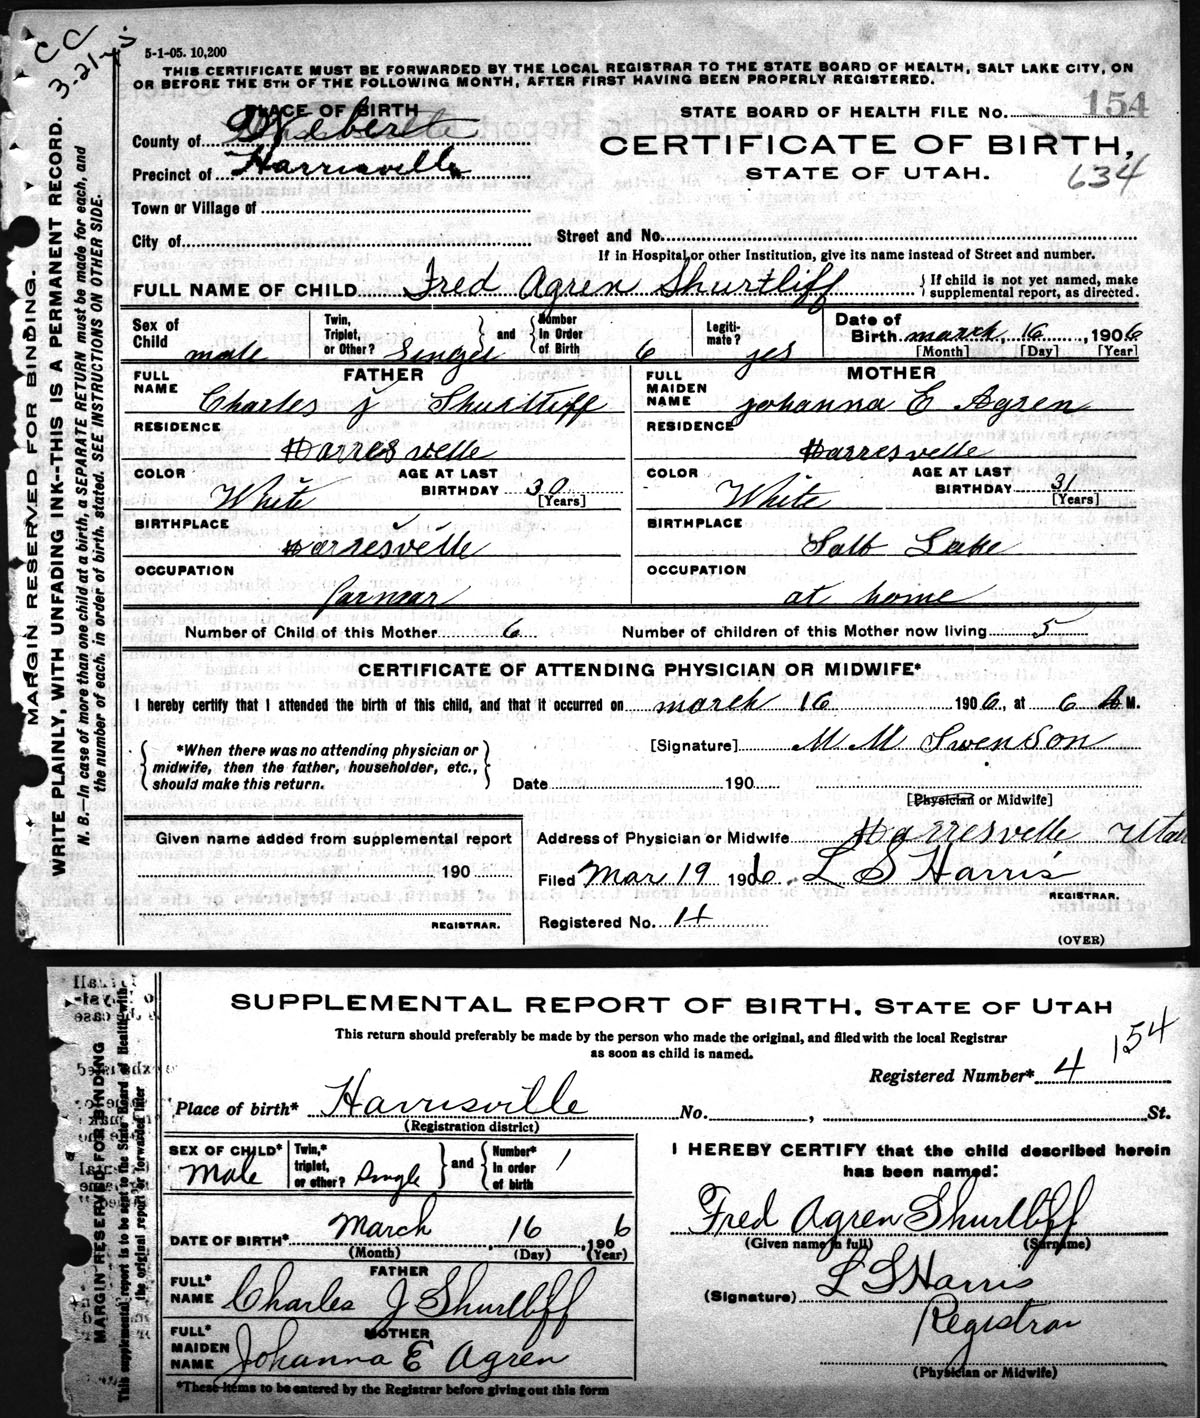 CC
3-21-
5-1-05. 10,200
THIS CERTIFICATE MUST BE FORWARDED BY THE LOCAL REGISTRAR TO THE STATE BOARD OF HEALTH, SALT LAKE CITY, ON
OR BEFORE THE 5TH OF THE FOLLOWING MONTH, AFTER FIRST HAVING BEEN PROPERLY REGISTERED.
PLACE OF BIRTH
STATE BOARD OF HEALTH FILE No. 154
County of Weber
CERTIFICATE OF BIRTH,
Precinct of Harrisville
STATE OF UTAH.
634
Town or Village of
City of
Street and No.
If in Hospital or other Institution, give its name instead of Street and number.
FULL NAME OF CHILD Fred Agren Shurtliff { If child is not yet named, make supplemental report, as directed.
Sex of Child male Twin, Triplet, or Other? Singel } and { Number In Order of Birth 6 Legitimate? yes Date of Birth march 16, 1906
[Month] [Day] [Year]
FATHER
MOTHER
FULL NAME Charles J Shurtliff
FULL MAIDEN NAME Johanna E Agren
RESIDENCE Harresvelle
RESIDENCE Harresvelle
COLOR White AGE AT LAST BIRTHDAY 30 [Years]
COLOR White AGE AT LAST BIRTHDAY 31 [Years]
BIRTHPLACE Harresvelle
BIRTHPLACE Salt Lake
OCCUPATION farmear
OCCUPATION at home
Number of Child of this Mother 6 Number of children of this Mother now living 5
CERTIFICATE OF ATTENDING PHYSICIAN OR MIDWIFE*
I hereby certify that I attended the birth of this child, and that it occurred on march 16 1906, at 6 A M.
{ *When there was no attending physician or midwife, then the father, householder, etc., should make this return. }
[Signature] M M Swenson
Date 190
[Physician or Midwife]
Given name added from supplemental report
190
REGISTRAR.
Address of Physician or Midwife Harresvelle Utah
Filed Mar 19 1906 L S Harris
REGISTRAR.
Registered No. 14
(OVER)
MARGIN RESERVED FOR BINDING.
WRITE PLAINLY, WITH UNFADING INK--THIS IS A PERMANENT RECORD.
N. B.—In case of more than one child at a birth, a SEPARATE RETURN must be made for each, and
the number of each, in order of birth, stated. SEE INSTRUCTIONS ON OTHER SIDE.
SUPPLEMENTAL REPORT OF BIRTH, STATE OF UTAH
This return should preferably be made by the person who made the original, and filed with the local Registrar
as soon as child is named.
154
Registered Number* 4
Place of birth* Harrisville No. , St.
(Registration district)
SEX OF CHILD* Male Twin,* triplet, or other? Single } and { Number* in order of birth 1
DATE OF BIRTH* March 16, 1906
(Month) (Day) (Year)
FATHER
FULL* NAME Charles J Shurtliff
MOTHER
FULL* MAIDEN NAME Johanna E Agren
*These items to be entered by the Registrar before giving out this form
I HEREBY CERTIFY that the child described herein
has been named:
Fred Agren Shurtliff
(Given name in full) (Surname)
(Signature) L S Harris
Registrar
(Physician or Midwife)
MARGIN RESERVED FOR BINDING
This supplemental report is to be sent to the State Board of Health with
the original report or forwarded later